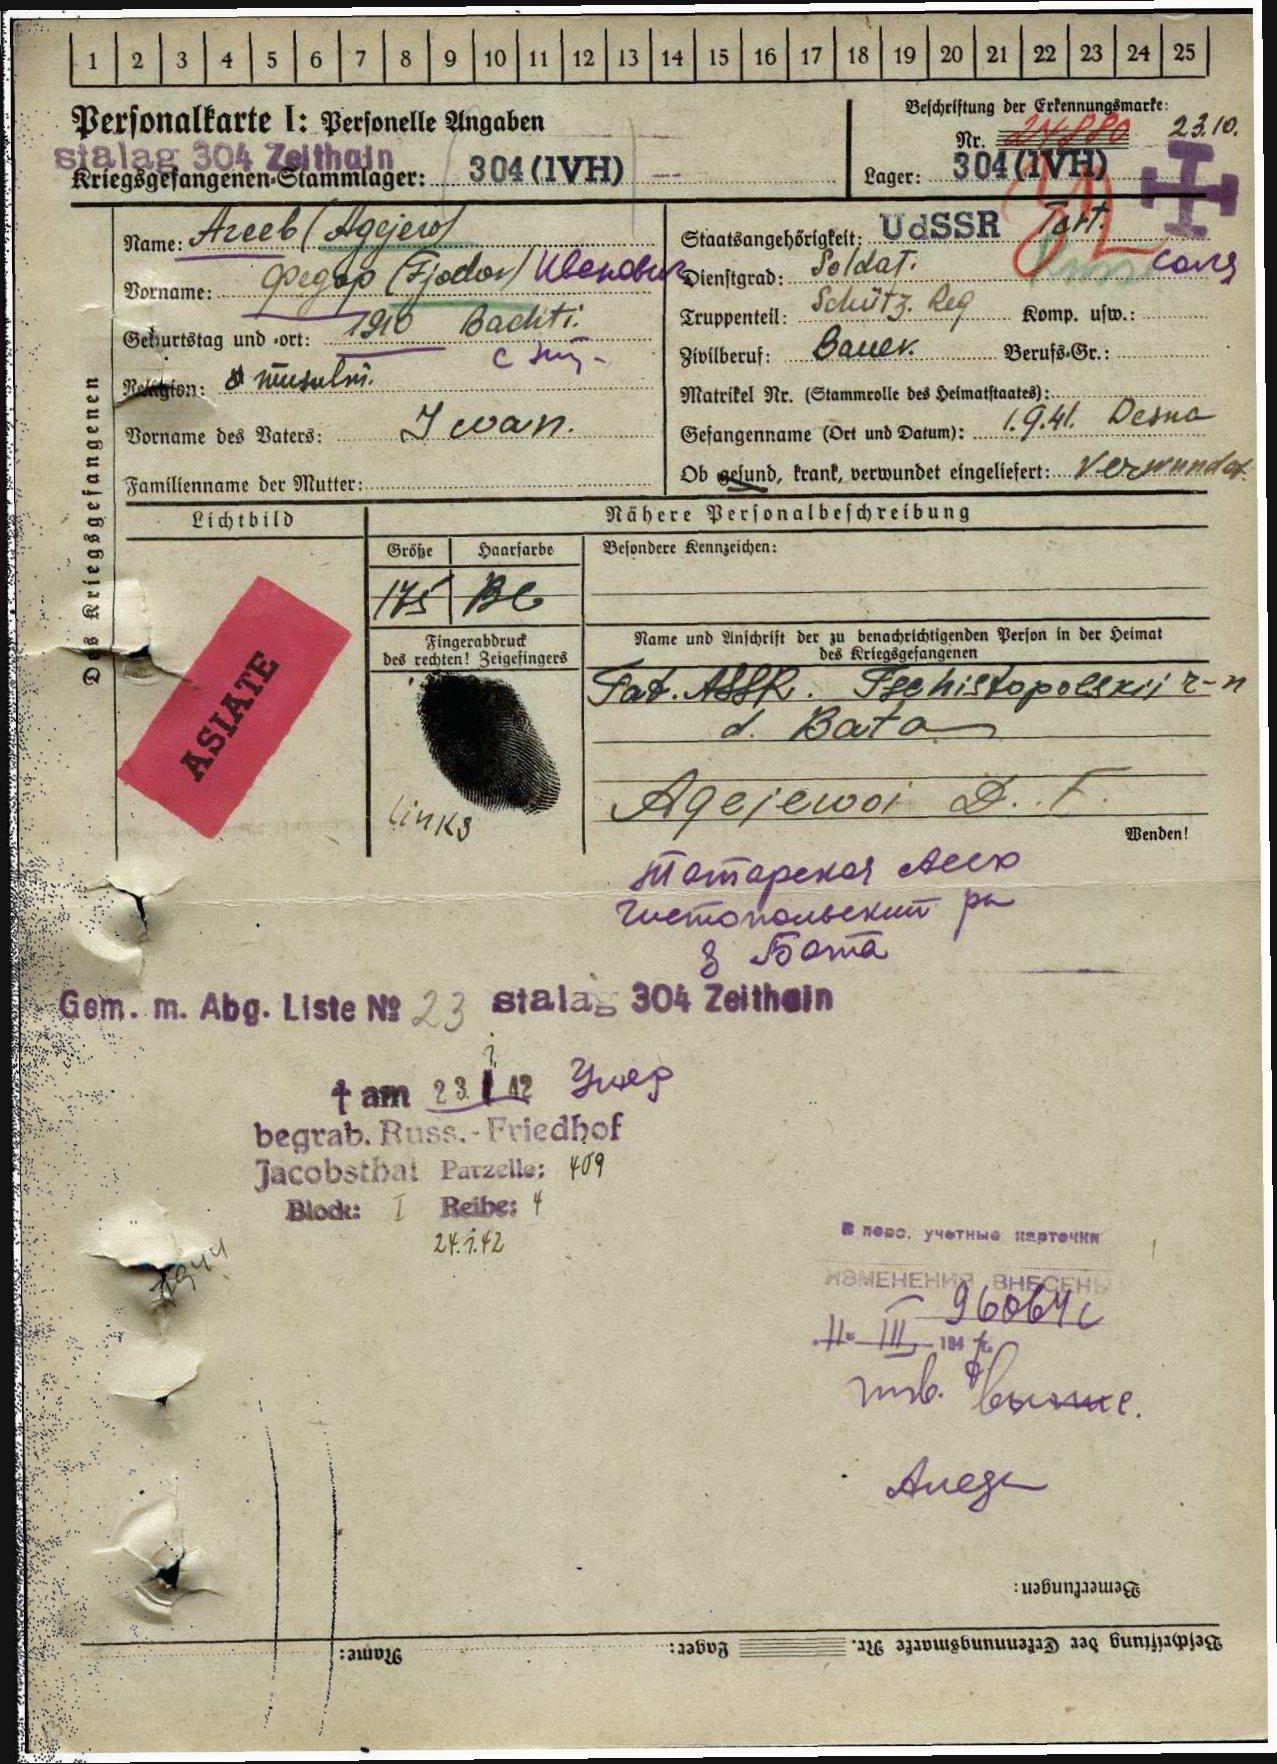 1 2 3 4 5 6 7 8 9 10 11 12 13 14 15 16 17 18 19 20 21 22 23 24 25
Personalkarte I: Personelle Angaben
Stalag 304 Zeithain
Kriegsgefangenen-Stammlager: 304 (IVH)
Beschriftung der Erkennungsmarke:
Nr. 24880 23.10.
Lager: 304 (IVH)
Des Kriegsgefangenen
Name: Агеев (Agejew)
Vorname: Федор (Fjodor) Иванович
Geburtstag und -ort: 1910 Bachti.
Religion: musulm.
Vorname des Vaters: Iwan.
Familienname der Mutter:
Staatsangehörigkeit: UdSSR Tart.
Dienstgrad: Soldat.
Truppenteil: Schütz. Reg Komp. usw.:
Zivilberuf: Bauer. Berufs-Gr.:
Matrikel Nr. (Stammrolle des Heimatstaates):
Gefangenname (Ort und Datum): 1.9.41. Desna
Ob gesund, krank, verwundet eingeliefert: Verwundet.
Lichtbild
ASIATE
Nähere Personalbeschreibung
Größe Haarfarbe Besondere Kennzeichen:
175
Fingerabdruck
des rechten! Zeigefingers
links
Name und Anschrift der zu benachrichtigenden Person in der Heimat
des Kriegsgefangenen
Tat. ASSR. Tschistopolskij r-n
d. Bata
Agejewoi D. F.
Wenden!
Татарская Асср
Чистопольский рн
д Бата
Gem. m. Abg. Liste № 23 Stalag 304 Zeithain
† am 23. 1 42 Умер
begrab. Russ.-Friedhof
Jacobsthal Parzelle: 409
Block: I Reihe: 4
24.1.42
В перс. учетные карточки
ИЗМЕНЕНИЯ ВНЕСЕНЫ
96064с
"11" III 194
Bemerkungen:
Beschriftung der Erkennungsmarke Nr. Lager: Name: